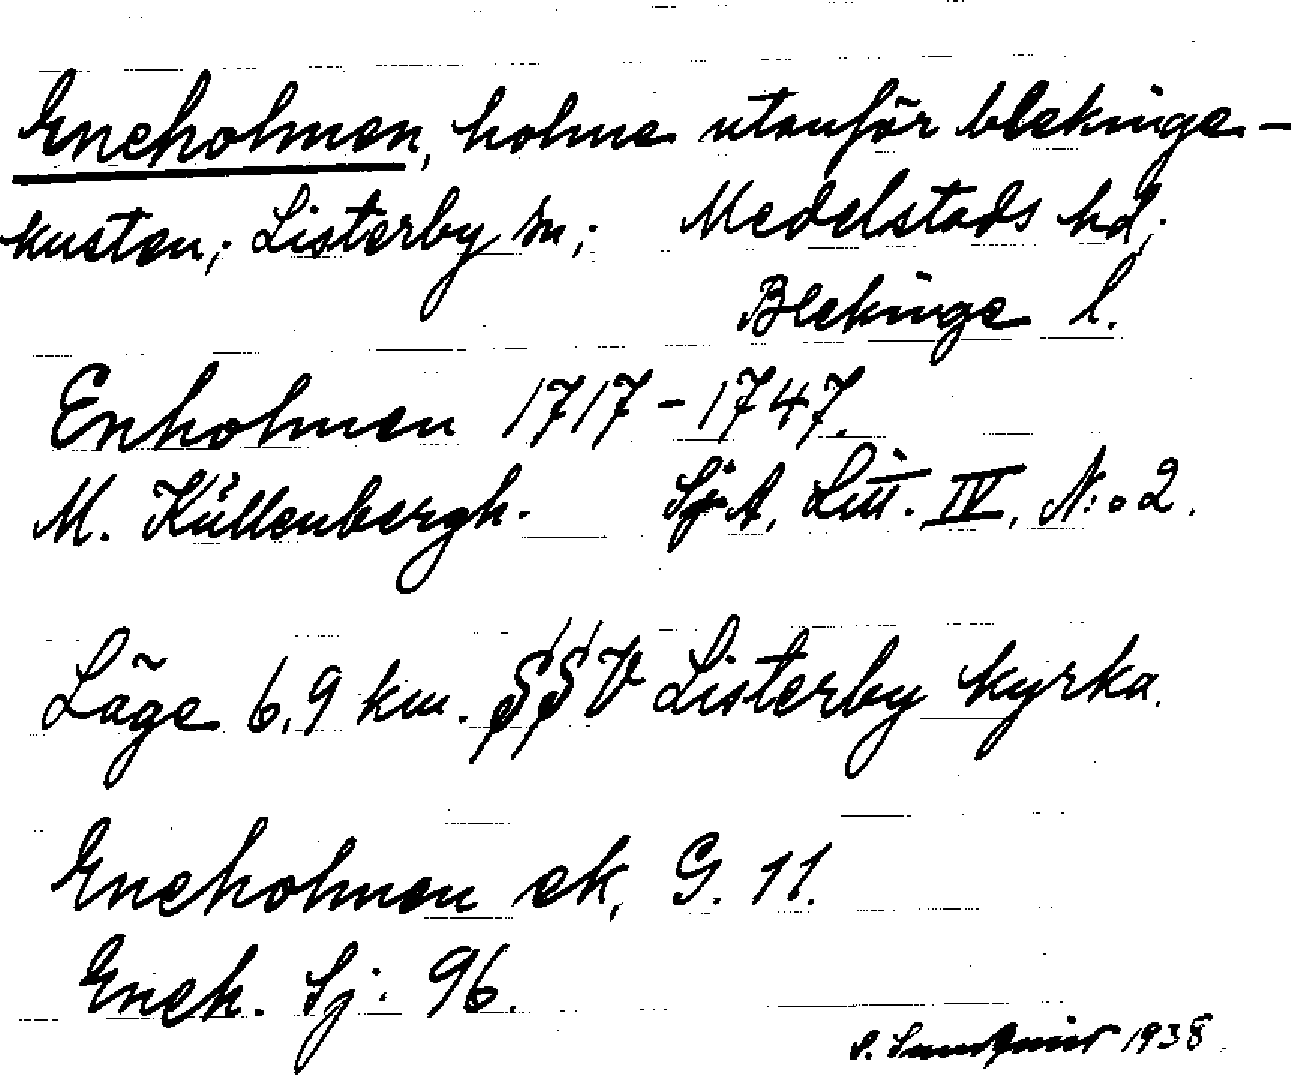 Eneholmen, holme utanför blekinge-
kusten; Listerby sn; Medelstads hd;
Blekinge l.
Enholmen 1717-1747.
M. Küllenbergh. Sj A, Litt. IV, N:o 2.
Läge 6,9 km. SSV Listerby kyrka.
Eneholmen ek, G. 11.
Eneh. Sj: 96.
1938